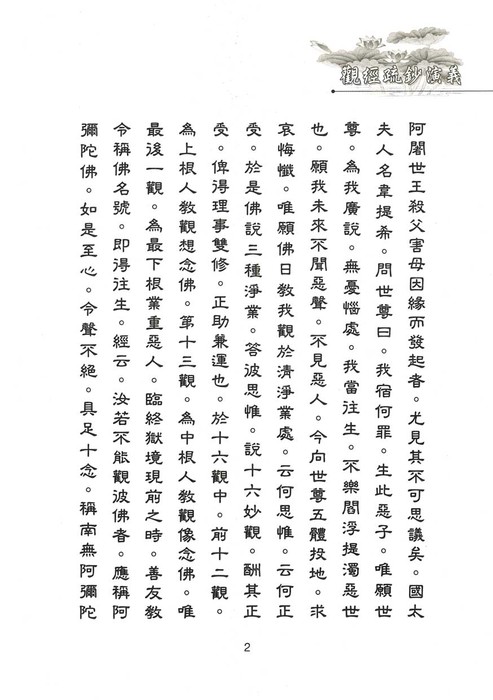 觀經疏鈔演義
阿闍世王殺父害母因緣而發起者。尤見其不可思議矣。國太
夫人名韋提希。問世尊曰。我宿何罪。生此惡子。唯願世
尊。為我廣說。無憂惱處。我當往生。不樂閻浮提濁惡世
也。願我未來不聞惡聲。不見惡人。今向世尊五體投地。求
哀悔懺。唯願佛日教我觀於清淨業處。云何思惟。云何正
受。於是佛說三種淨業。答彼思惟。說十六妙觀。酬其正
受。俾得理事雙修。正助兼運也。於十六觀中。前十二觀。
為上根人教觀想念佛。第十三觀。為中根人教觀像念佛。唯
最後一觀。為最下根業重惡人。臨終獄境現前之時。善友教
令稱佛名號。即得往生。經云。汝若不能觀彼佛者。應稱阿
彌陀佛。如是至心。令聲不絕。具足十念。稱南無阿彌陀
2